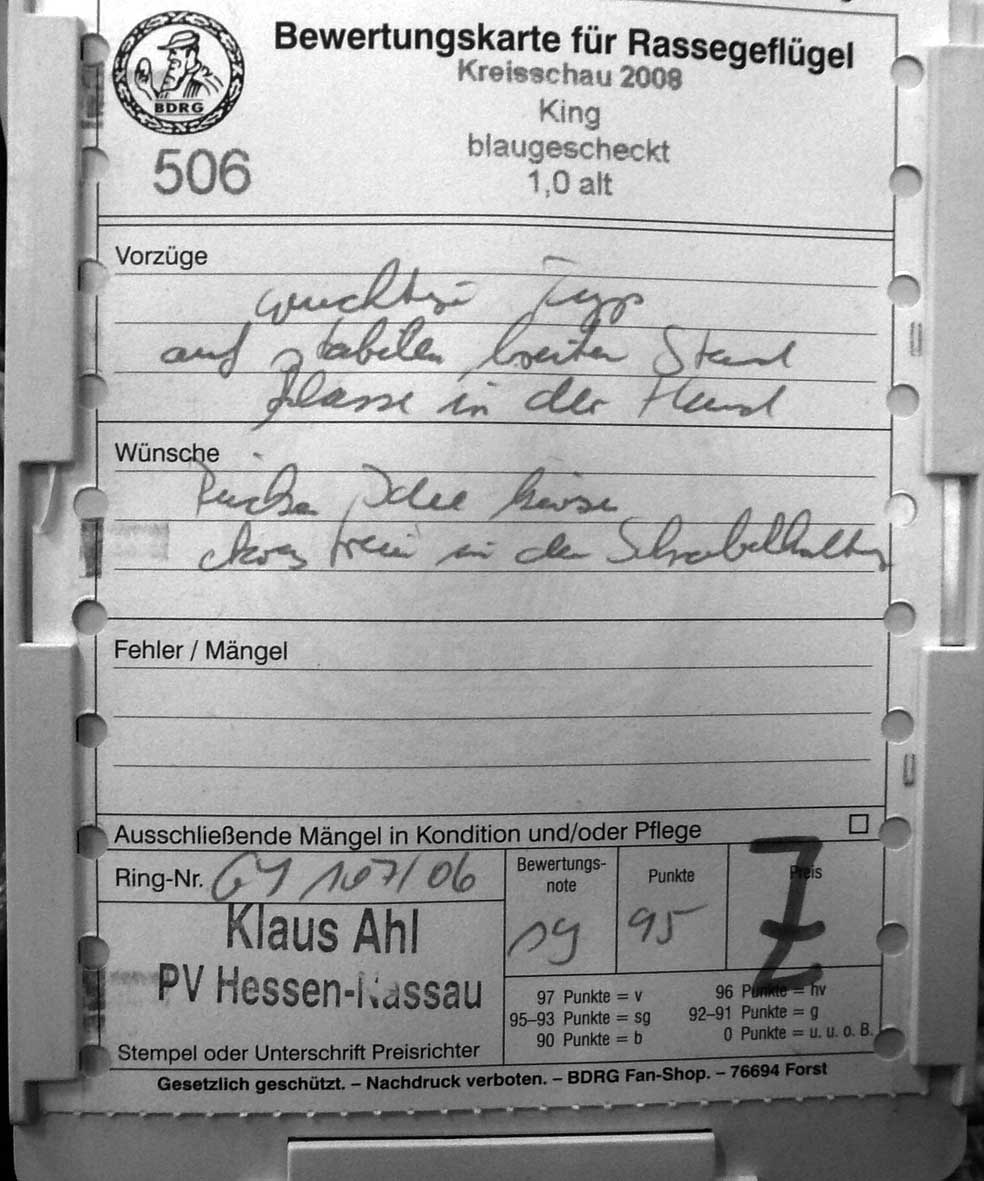 Bewertungskarte für Rassegeflügel
BDRG
Kreisschau 2008
King
506
blaugescheckt
1,0 alt
Vorzüge
wuchtige Typ
auf stabilen breiten Stand
Klasse in der Hand
Wünsche
Rücken Idee kürzer
etwas freier in der Schnabelhaltung
Fehler / Mängel
Ausschließende Mängel in Kondition und/oder Pflege
Ring-Nr. 107/06
Bewertungs-
note
sg
Punkte
95
Preis
Z
Klaus Ahl
PV Hessen-Nassau
Stempel oder Unterschrift Preisrichter
97 Punkte = v
96 Punkte = hv
95–93 Punkte = sg
92–91 Punkte = g
90 Punkte = b
0 Punkte = u. u. o. B.
Gesetzlich geschützt. – Nachdruck verboten. – BDRG Fan-Shop. – 76694 Forst